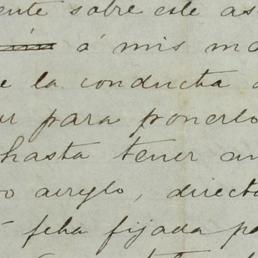 ente sobre este as
á mis ma
e la conducta
ur para ponerlo
hasta tener un
o arreglo, directa
fcha fijada pa